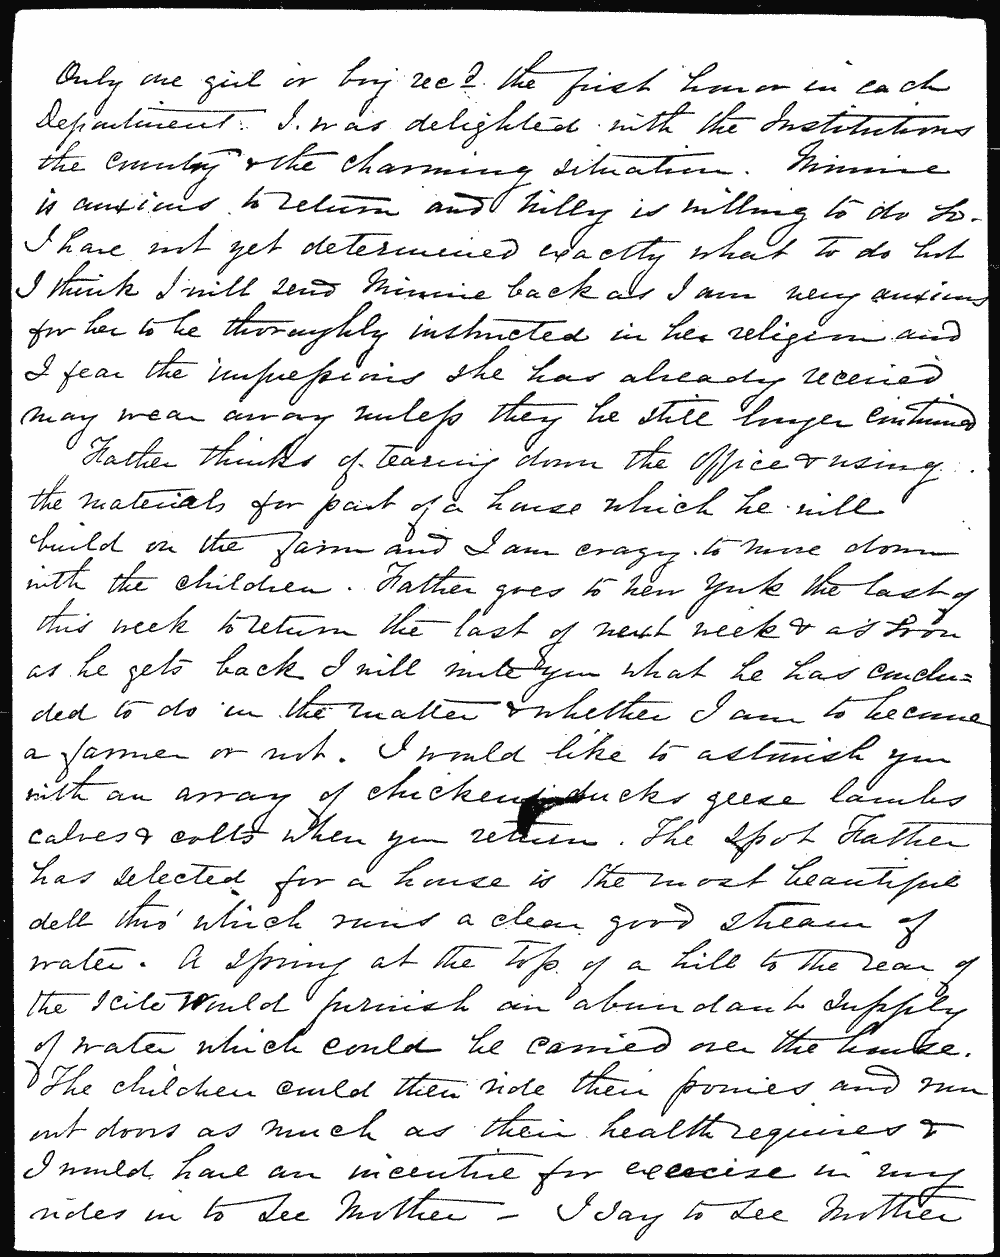 Only one girl or boy recd. the first honor in each
Department. I was delighted with the Institutions
the country & the charming situation. Minnie
is anxious to return and Willy is willing to do so.
I have not yet determined exactly what to do but
I think I will send Minnie back as I am very anxious
for her to be thoroughly instructed in her religion and
I fear the impressions she has already received
may wear away unless they be still longer continued
Father thinks of tearing down the office & using
the materials for part of a house which he will
build on the farm and I am crazy to move down
with the children. Father goes to New York the last of
this week to return the last of next week & as soon
as he gets back I will write you what he has conclu=
ded to do in the matter & whether I am to become
a farmer or not. I would like to astonish you
with an array of chickens ducks geese lambs
calves & colts when you return. The spot Father
has selected for a house is the most beautiful
dell thro' which runs a clear good stream of
water. A spring at the top of a hill to the rear of
the scite would furnish an abundant supply
of water which could be carried over the house.
The children could then ride their ponies and run
out doors as much as their health requires &
I would have an incentive for exercise in my
rides in to see Mother - I say to see Mother